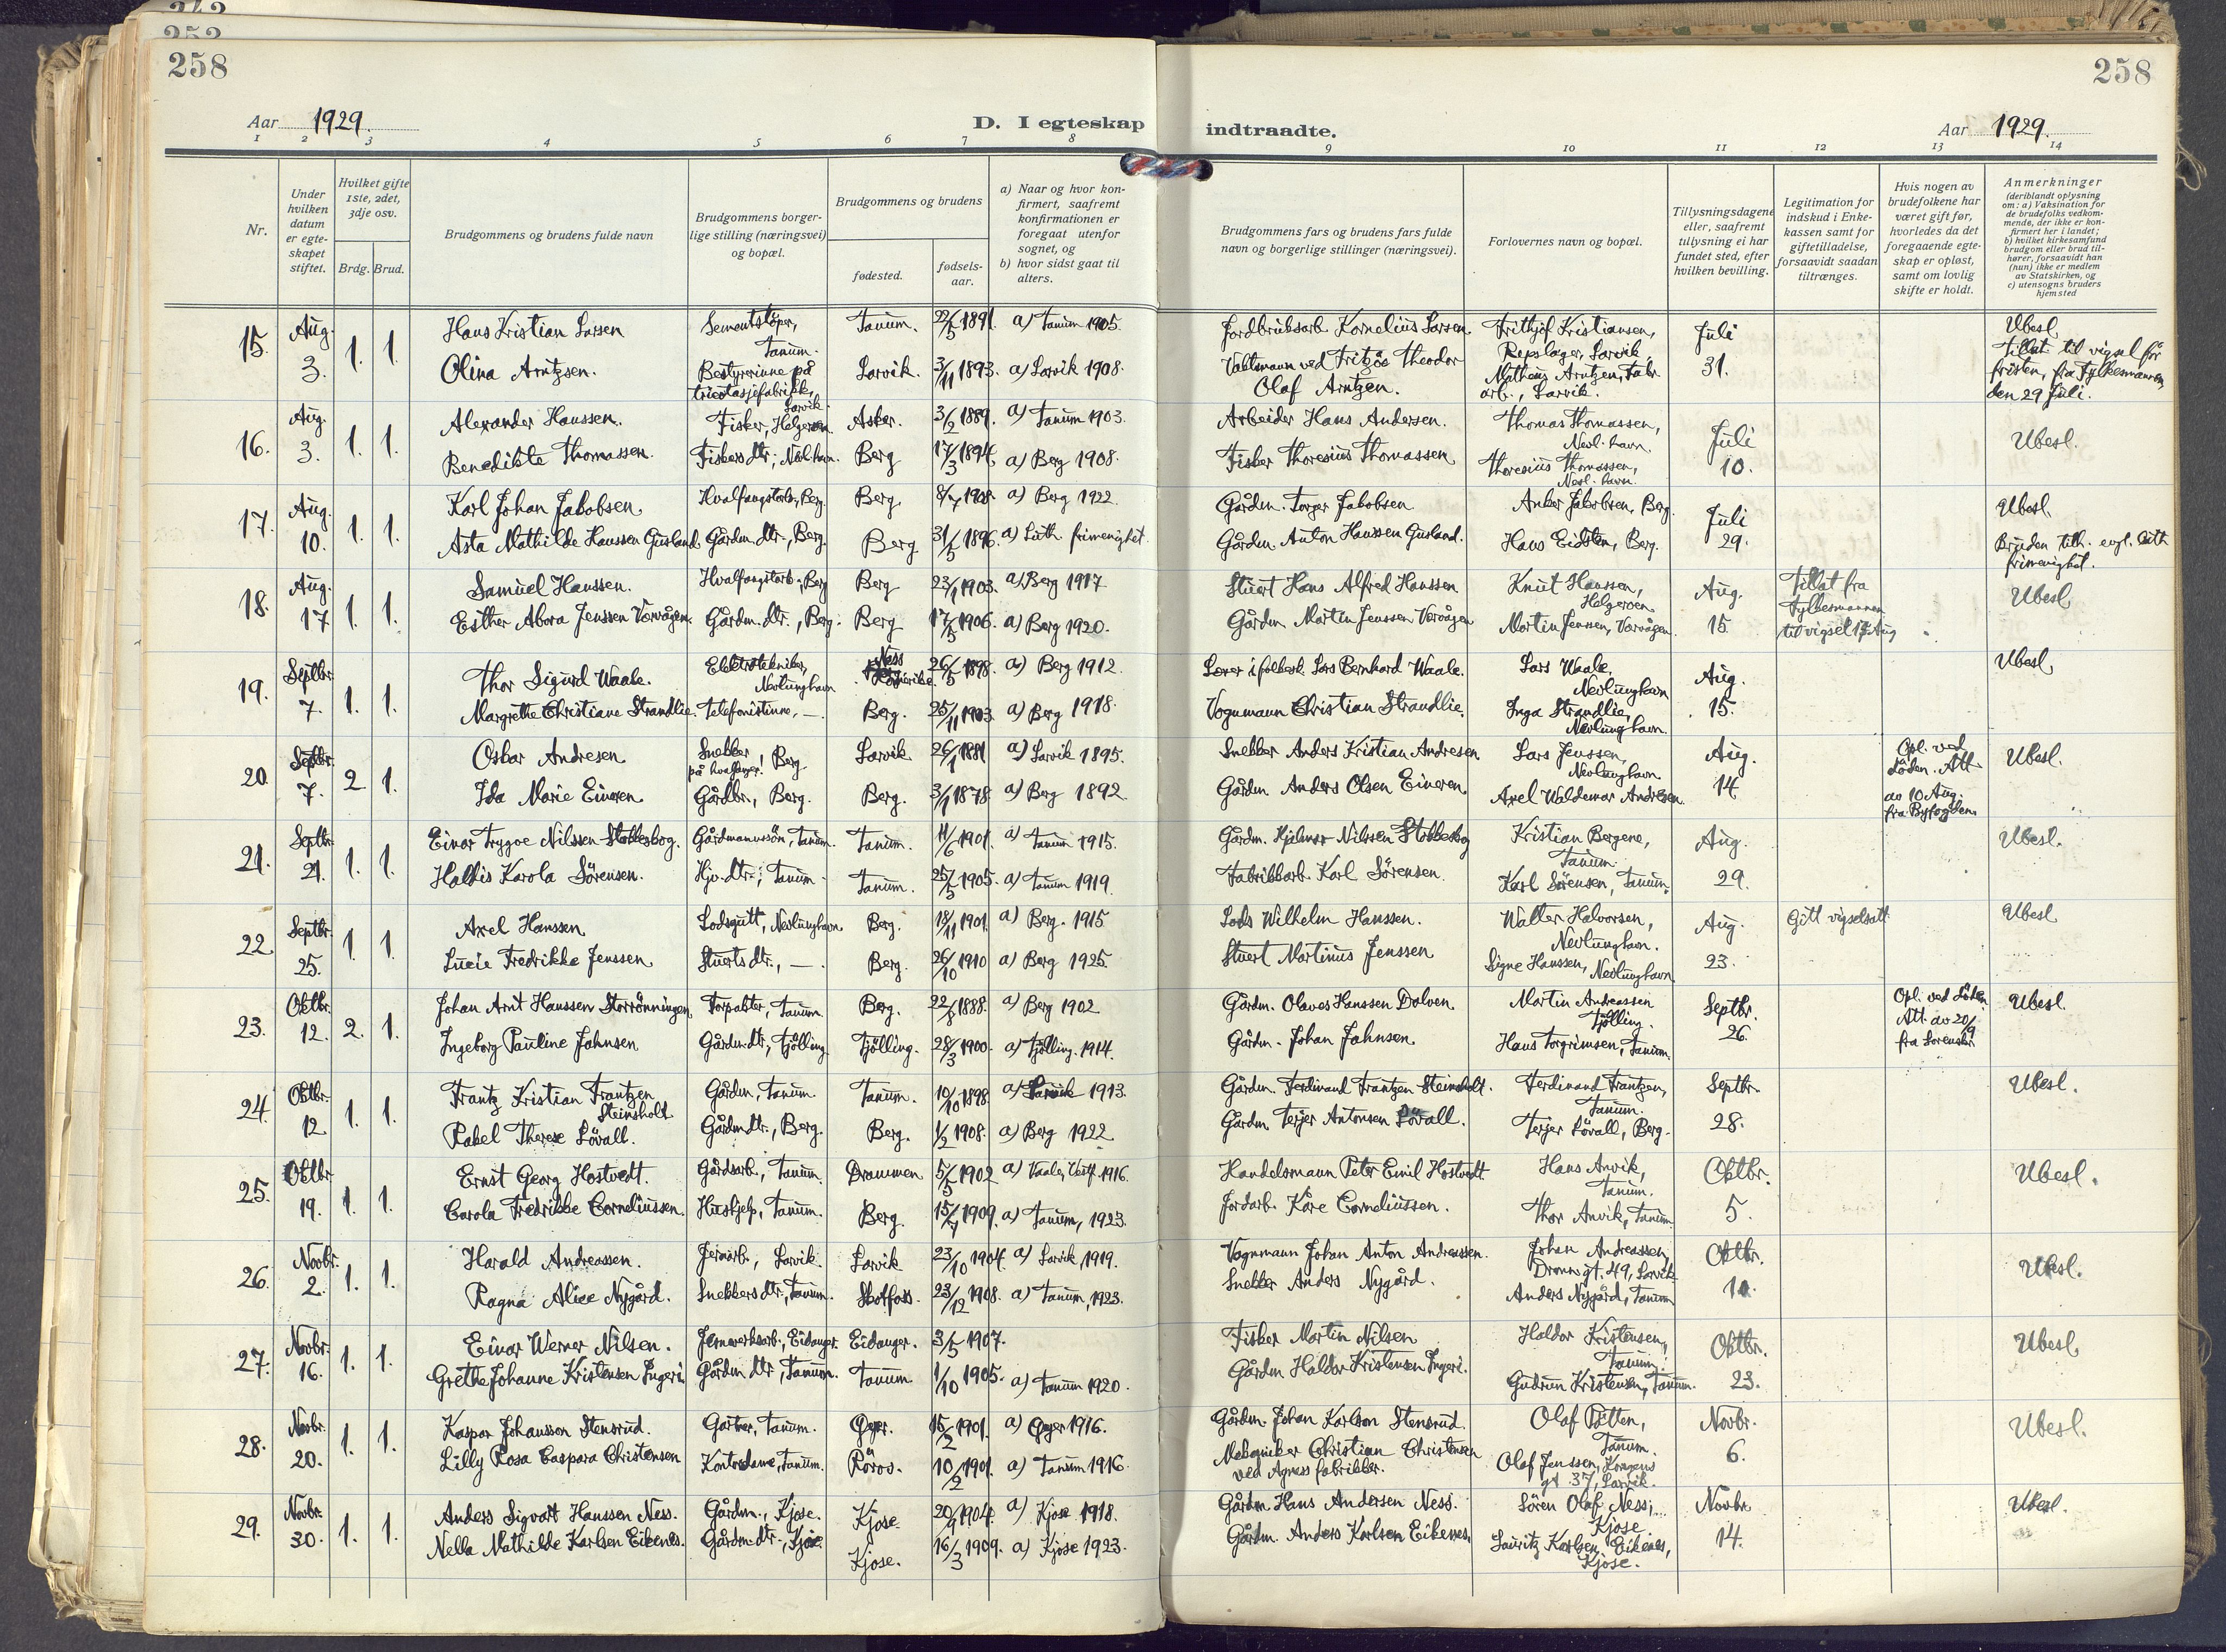 252
258
258
Aar 1929.
D. I egteskap indtraadte.
Aar 1929.
1 2 3 4 5 6 7 8 9 10 11 12 13 14
Nr.
Under hvilken datum er egteskapet stiftet.
Hvilket gifte 1ste, 2det, 3dje osv.
Brdg. Brud.
Brudgommens og brudens fulde navn
Brudgommens borgerlige stilling (næringsvei) og bopæl.
Brudgommens og brudens
fødested.
fødselsaar.
a) Naar og hvor konfirmert, saafremt konfirmationen er foregaat utenfor sognet, og
b) hvor sidst gaat til alters.
Brudgommens fars og brudens fars fulde navn og borgerlige stillinger (næringsvei).
Forlovernes navn og bopæl.
Tillysningsdagene eller, saafremt tillysning ei har fundet sted, efter hvilken bevilling.
Legitimation for indskud i Enkekassen samt for giftetilladelse, forsaavidt saadan tiltrænges.
Hvis nogen av brudefolkene har været gift før, hvorledes da det foregaaende egteskap er opløst, samt om lovlig skifte er holdt.
Anmerkninger
(deriblandt oplysning om: a) Vaksination for de brudefolks vedkommende, der ikke er konfirmert her i landet; b) hvilket kirkesamfund brudgom eller brud tilhører, forsaavidt han (hun) ikke er medlem av Statskirken, og c) utensogns bruders hjemsted
15. Aug. 3. 1. 1. Hans Kristian Larsen Sementstøper, Tanum. Tanum. 22/5 1891. a) Tanum 1905. Jordbruksarb. Kornelius Larsen. Frithjof Kristiansen, Repslager, Larvik. Juli 31. Ubesl.
Olina Arntzen. Bestyrerinne på tricotasjefabrikk, Larvik. Larvik. 3/11 1893. a) Larvik 1908. Vaktmann ved Fritzöe Theodor Olaf Arntzen. Matheus Arntzen, Fabr. arb., Larvik. Tillat til vigsel før fristen, fra Fylkesmannen, den 29 Juli.
16. Aug. 3. 1. 1. Alexander Hanssen. Fisker, Helgeroen. Asker. 3/2 1889. a) Tanum 1903. Arbeider Hans Andersen. Thomas Thomassen, Nevl. havn. Juli 10. Ubesl.
Benedikte Thomassen. Fiskers dtr; Nevl. havn. Berg 17/3 1894. a) Berg 1908. Fisker Thoresius Thomassen Thoresius Thomassen, Nevl. havn.
17. Aug. 10. 1. 1. Karl Johan Jakobsen Hvalfangstarb., Berg. Berg. 8/7 1908. a) Berg 1922. Gårdm. Torger Jakobsen Anker Jakobsen, Berg Juli 29. Ubesl.
Asta Mathilde Hanssen Gusland Gårdm. dtr., Berg. Berg 31/5 1896. a) Luth. frimenighet. Gårdm. Anton Hanssen Gusland. Hans Eidsten, Berg. Bruden tilh. evgl. luth frimenighet.
18. Aug. 17 1. 1. Samuel Hanssen. Hvalfangstarb., Berg Berg 23/1 1903. a) Berg 1917 Stuert Hans Alfred Hanssen Knut Hanssen, Helgeroen Aug. 15. Tillat fra Fylkesmannen til vigsel 17 Aug Ubesl.
Esther Abora Jenssen Vervågen. Gårdm. dtr., Berg. Berg 17/5 1906. a) Berg 1920. Gårdm. Martin Jenssen Vervågen Martin Jenssen, Vervågen
19. Septbr. 7. 1. 1. Thor Sigurd Waale. Elektrotekniker, Nevlunghavn Ness Romerike. 26/5 1898. a) Berg 1912. Lærer i folkesk. Lars Bernhard Waale. Lars Waale. Nevlunghavn Aug. 15. Ubesl.
Margrethe Christiane Strandlie. Telefonistinne, — Berg. 25/11 1903. a) Berg 1918. Vognmann Christian Strandlie. Inga Strandlie, Nevlunghavn.
20. Septbr. 7. 2 1. Oskar Andresen. Snekker på hvalfanger! Berg. Larvik 26/1 1881 a) Larvik 1895. Snekker Anders Kristian Andresen Lars Jenssen, Nevlunghavn Aug. 14. Opl. ved døden. Att. av 10 Aug. fra Byfogden. Ubesl.
Ida Marie Eineren. Gårdbr., Berg. Berg. 3/1 1878. a) Berg 1892. Gårdm. Anders Olsen Eineren. Axel Waldemar Andresen
21. Septbr. 21. 1. 1. Einar Trygve Nilssen Stokkesbog. Gårdmannssön, Tanum. Tanum. 11/6 1901. a) Tanum 1915. Gårdm. Hjalmar Nilssen Stokkesbog Kristian Bergene, Tanum. Aug. 29. Ubesl.
Haldis Karola Sörensen. Hjv. dtr.; Tanum. Tanum. 25/5 1905. a) Tanum 1919. Fabrikkarb. Karl Sörensen. Karl Sörensen, Tanum.
22. Septbr. 25. 1. 1. Axel Hanssen Losgutt, Nevlunghavn Berg. 18/11 1901. a) Berg. 1915 Lods Wilhelm Hanssen. Walter Halvorsen, Nevlunghavn. Aug. 23. Gitt vigselsatt. Ubesl.
Lucie Fredrikke Jenssen Stuerts dtr., — Berg. 26/10 1910 a) Berg 1925. Stuert Martinius Jenssen Signe Hanssen, Nevlunghavn
23. Oktbr. 12. 2. 1. Johan Arnt Hanssen Storrönningen. Forpakter, Tanum. Berg. 22/8 1888. a) Berg 1902 Gårdm. Olaves Hanssen Dolven. Martin Andreassen Tjölling. Septbr. 26. Opl. ved døden Att. av 20/9 fra Sorenskr. Ubesl.
Ingeborg Pauline Jahnsen Gårdm. dtr, Tjölling. Tjölling. 28/3 1900. a) Tjölling. 1914. Gårdm. Johan Jahnsen. Hans Torgrimsen, Tanum.
24. Oktbr. 12. 1. 1. Frantz Kristian Frantzen Steinsholt Gårdm, Tanum. Tanum. 10/10 1898. a) Larvik 1913. Gårdm. Ferdinand Frantzen Steinsholt. Ferdinand Frantzen, Tanum. Septbr. 28. Ubesl.
Rakel Therese Lövall. Gårdm dtr., Berg. Berg. 1/2 1908. a) Berg 1922 Gårdm Terjer Antonsen Lövall. Terjer Lövall, Berg.
25. Oktbr. 19. 1. 1. Ernst Georg Hostvedt. Gårdsarb., Tanum. Drammen 5/5 1902 a) Vaale, Vestf. 1916. Handelsmann Peter Emil Hostvedt. Hans Anvik, Tanum. Oktbr. 5. Ubesl.
Carola Fredrikke Corneliussen. Huskjelp, Tanum. Berg. 15/7 1909. a) Tanum, 1923. Jordarb. Kåre Corneliussen. Thor Anvik, Tanum.
26. Novbr. 2. 1. 1. Harald Andreassen. Jernarb., Larvik Larvik 23/10 1904. a) Larvik, 1919. Vognmann Johan Anton Andreassen. Johan Andreassen, Dronn. gt. 49, Larvik Oktbr. 10. Ubesl.
Ragna Alice Nygård. Snekkers dtr., Tanum. Skotfoss. 23/12 1908. a) Tanum, 1923. Snekker Anders Nygård. Anders Nygård, Tanum
27. Novbr. 16. 1. 1. Einar Werner Nilsen. Jernverksarb., Eidanger. Eidanger. 3/5 1907. Fisker Martin Nilsen Haldor Kristensen, Tanum. Oktbr. 23. Ubesl.
Grethe Johanne Kristensen Ingeri. Gårdm dtr, Tanum. Tanum. 1/10 1905. a) Tanum 1920. Gårdm Haldor Kristensen Ingeri. Gudrun Kristensen, Tanum.
28. Novbr. 20. 1. 1. Kaspar Johansson Stensrud. Gartner, Tanum. Øyer. 15/2 1901. a) Øyer 1916. Gårdm. Johan Karlson Stensrud. Olaf Tutten, Tanum. Novbr. 6. Ubesl.
Lilly Rosa Caspara Christensen Kontordame, Tanum. Röros. 10/2 1901. a) Tanum 1916. Mekaniker Christian Christensen ved Agness fabrikker. Olaf Jenssen, Kongens gt 37, Larvik.
29. Novbr. 30. 1. 1. Anders Sigvart Hanssen Ness. Gårdm., Kjose. Kjose. 20/9 1904. a) Kjose 1918. Gårdm. Hans Andersen Ness. Sören Olaf Ness, Kjose Novbr. 14. Ubesl.
Nella Mathilde Karlsen Eikenes. Gårdm. dtr., Kjose Kjose. 16/3 1909. a) Kjose 1923. Gårdm. Anders Karlsen Eikenes. Lauritz Karlsen Eikenes, Kjose.